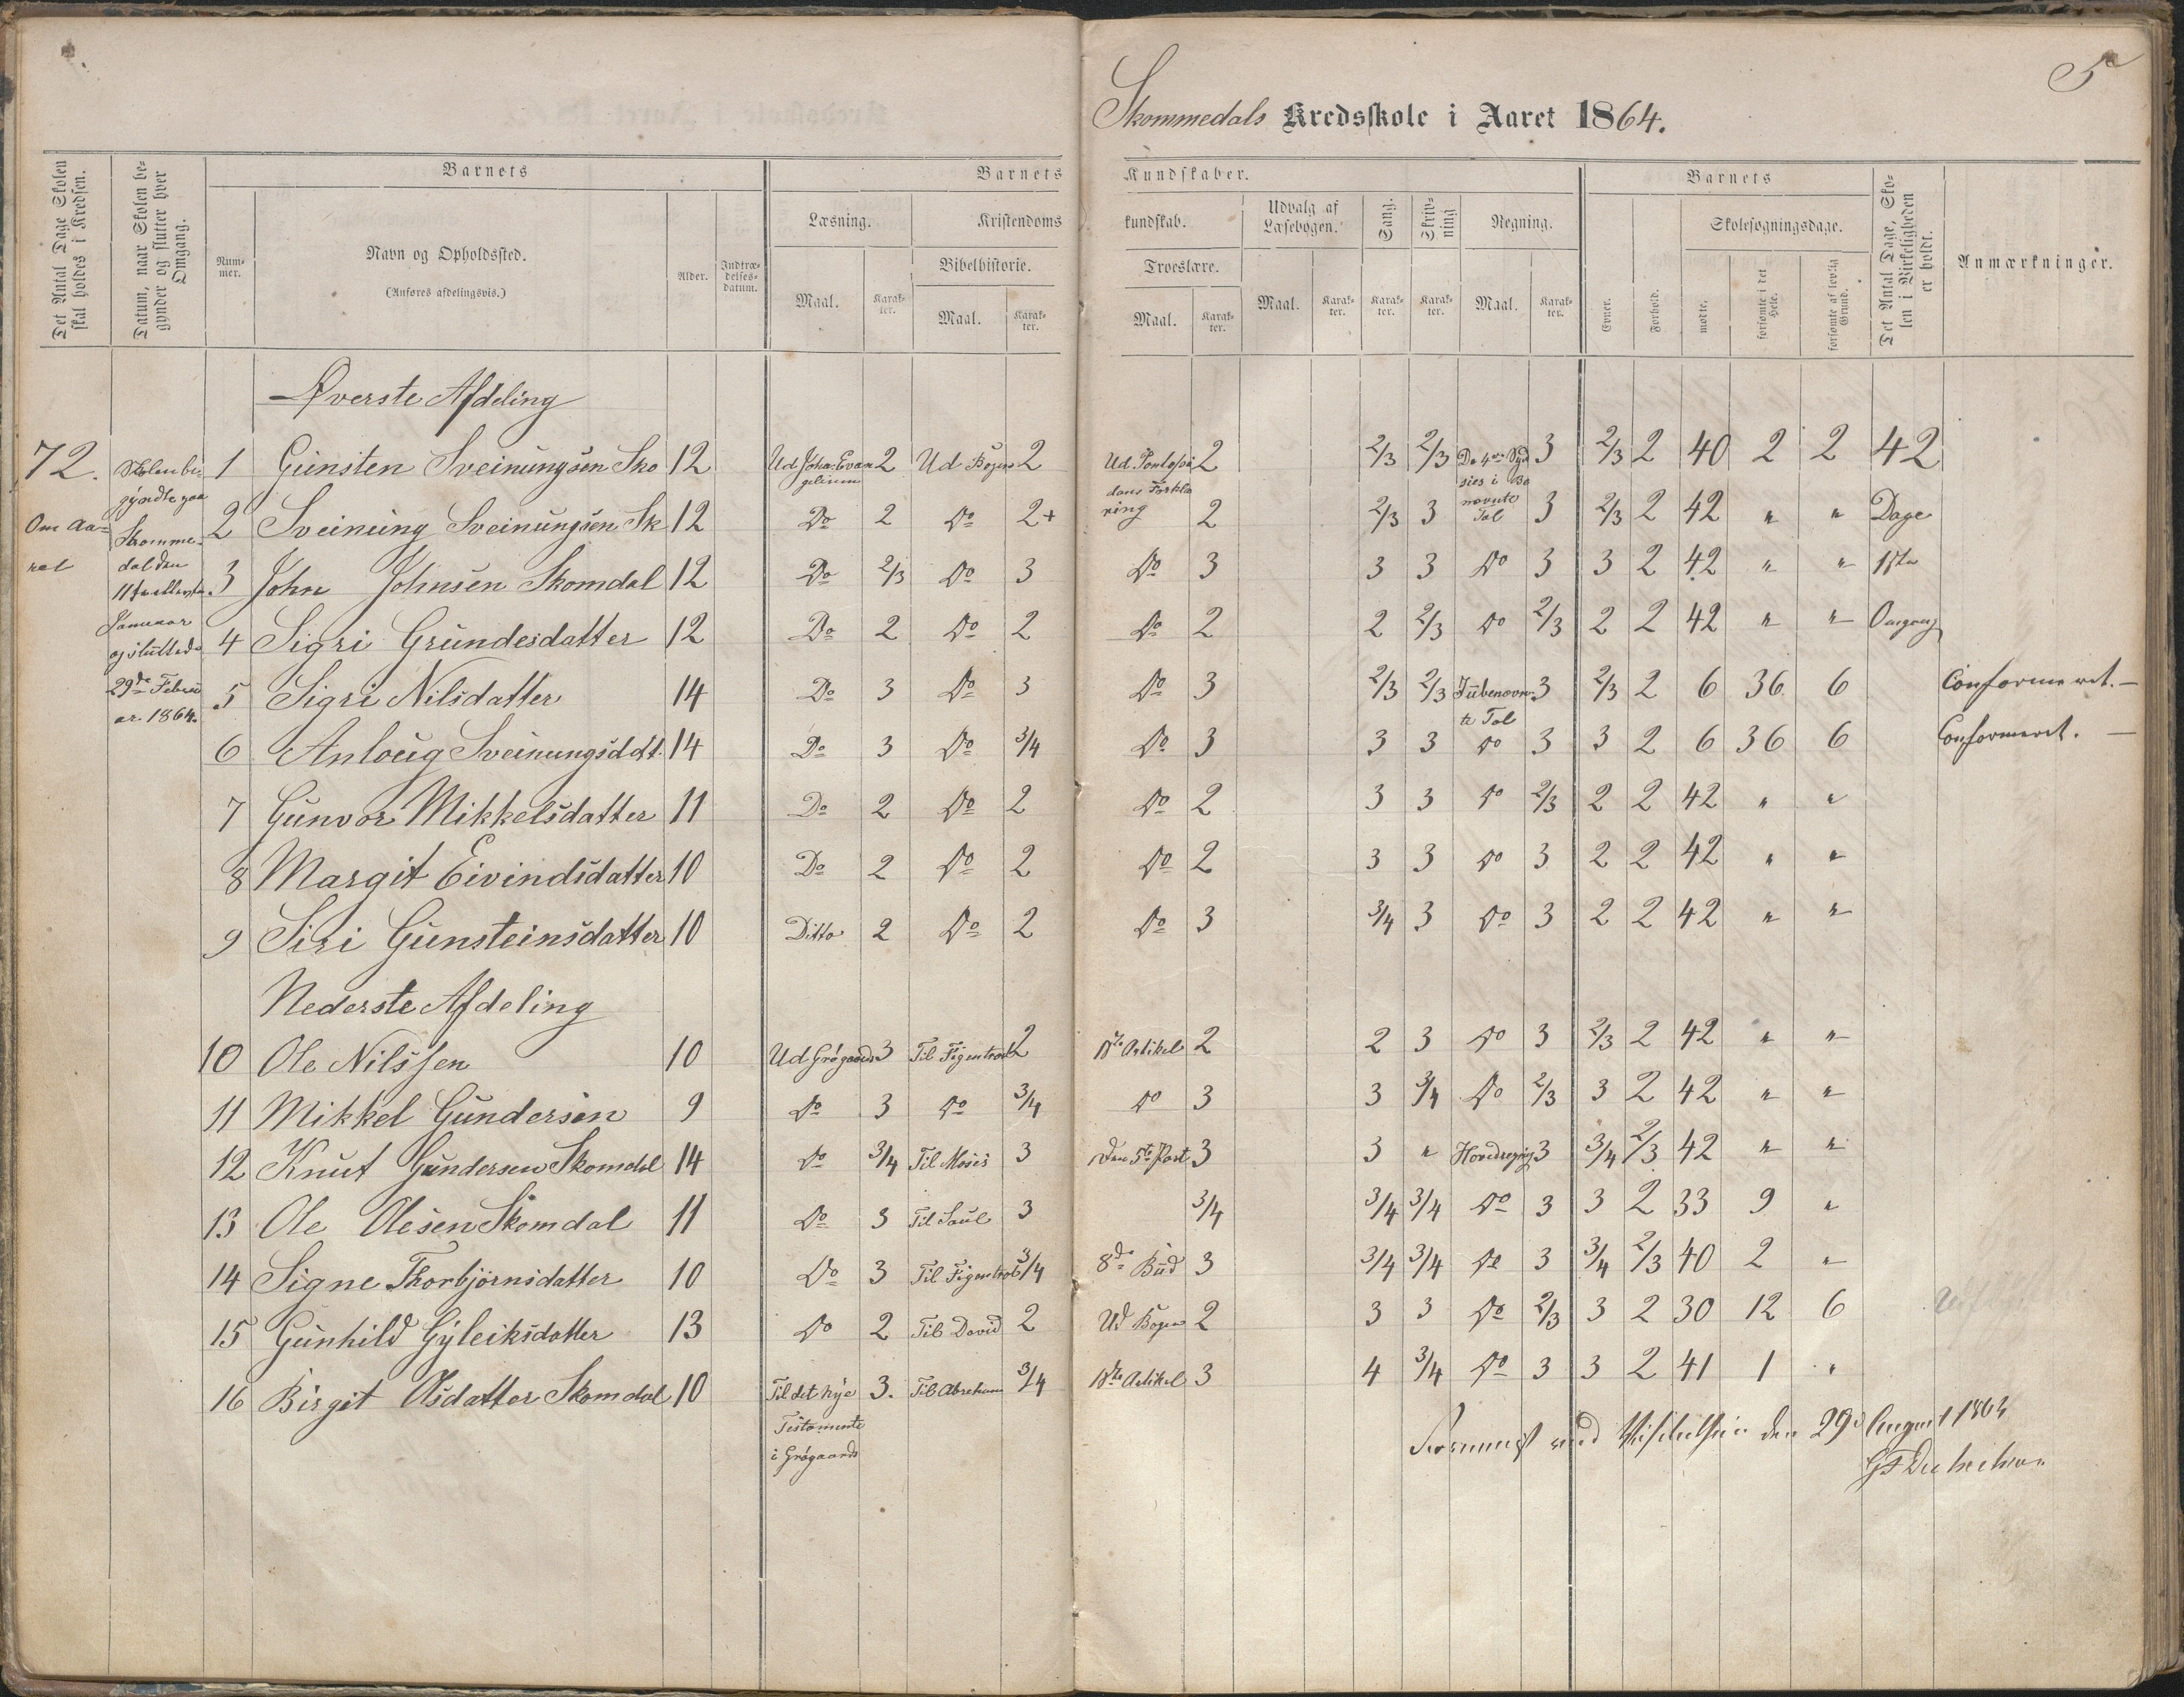 5
Skommedals Kredsskole i Aaret 1864.
Det Antal Dage Skolen skal holdes i Kredsen.
Datum, naar Skolen begynder og slutter hver Omgang.
Barnets
Nummer.
Navn og Opholdssted.
(Anføres afdelingsvis.)
Alder.
Indtrædelsesdatum.
Barnets Kundskaber.
Læsning.
Maal. Karakter.
Kristendomskundskab.
Bibelhistorie.
Maal. Karakter.
Troeslære.
Maal. Karakter.
Udvalg af Læsebogen.
Maal. Karakter.
Sang.
Karakter.
Skrivning
Karakter.
Regning.
Maal. Karakter.
Barnets
Evner.
Forhold.
Skolesøgningsdage.
mødte.
forsømte i det Hele.
forsømte af lovlig Grund.
Det Antal Dage, Skolen i Virkeligheden er holdt.
Anmærkninger.
72.
Om Aaret
Skolen begyndte paa
Skommedal den
11te
Januar
og sluttede
29de Februar. 1864.
Øverste Afdeling
1 Gunsten Sveinungsen Sko 12 Ud Joha: Evangelium 2 Ud Bogen 2 Ud. Pontoppidans Forklaring 2 2/3 2/3 De 4re i Benævnte Tal 3 2/3 2 40 2 2 42
2 Sveinung Sveinungsen Sk 12 Do 2 Do 2+ 2 2/3 3 3 2/3 2 42 " " Dage
3 John Johnsen Skomdal 12 Do 2/3 Do 3 Do 3 3 3 Do 3 3 2 42 " " 1ste
4 Sigri Grundesdatter 12 Do 2 Do 2 Do 2 2 2/3 Do 2/3 2 2 42 " " Omgang
5 Sigri Nilsdatter 14 Do 3 Do 3 Do 3 2/3 2/3 Iubenævnte Tal 3 2/3 2 6 36 6 Conformeret. —
6 Anloug Sveinungsdat. 14 Do 3 Do 3/4 Do 3 3 3 Do 3 3 2 6 36 6 Conformeret. —
7 Gunvor Mikkelsdatter 11 Do 2 Do 2 Do 2 3 3 Do 2/3 2 2 42 " "
8 Margit Eivindsdatter 10 Do 2 Do 2 Do 2 3 3 Do 3 2 2 42 " "
9 Siri Gunsteinsdatter 10 Ditto 2 Do 2 Do 3 3/4 3 Do 3 2 2 42 " "
Nederste Afdeling
10 Ole Nilssen 10 Ud Grøgaards 3 Til Figentræet 2 1ste Artikel 2 2 3 Do 3 2/3 2 42 " "
11 Mikkel Gundersen 9 Do 3 Do 3/4 Do 3 3 3/4 Do 2/3 3 2 42 " "
12 Knut Gundersen Skomdal 14 Do 3/4 Til Moses 3 Den 5te Part 3 3 " Hovedregng 3 3/4 2/3 42 " "
13 Ole Olesen Skomdal 11 Do 3 Til Saul 3 3/4 3/4 3/4 Do 3 3 2 33 9 "
14 Signe Thorbjørnsdatter 10 Do 3 Til Figentræ 3/4 8de Bud 3 3/4 3/4 Do 3 3/4 2/3 40 2 "
15 Gunhild Gyleiksdatter 13 Do 2 Til David 2 Ud Bogen 2 3 3 Do 2/3 3 2 30 12 6
16 Birgit Olsdatter Skomdal 10 Til det nye 3. Til Abraham 3/4 1ste Artikel 3 4 3/4 Do 3 3 2 41 1 "
Testamente
i Grøgaards
ved den 29de August 1864